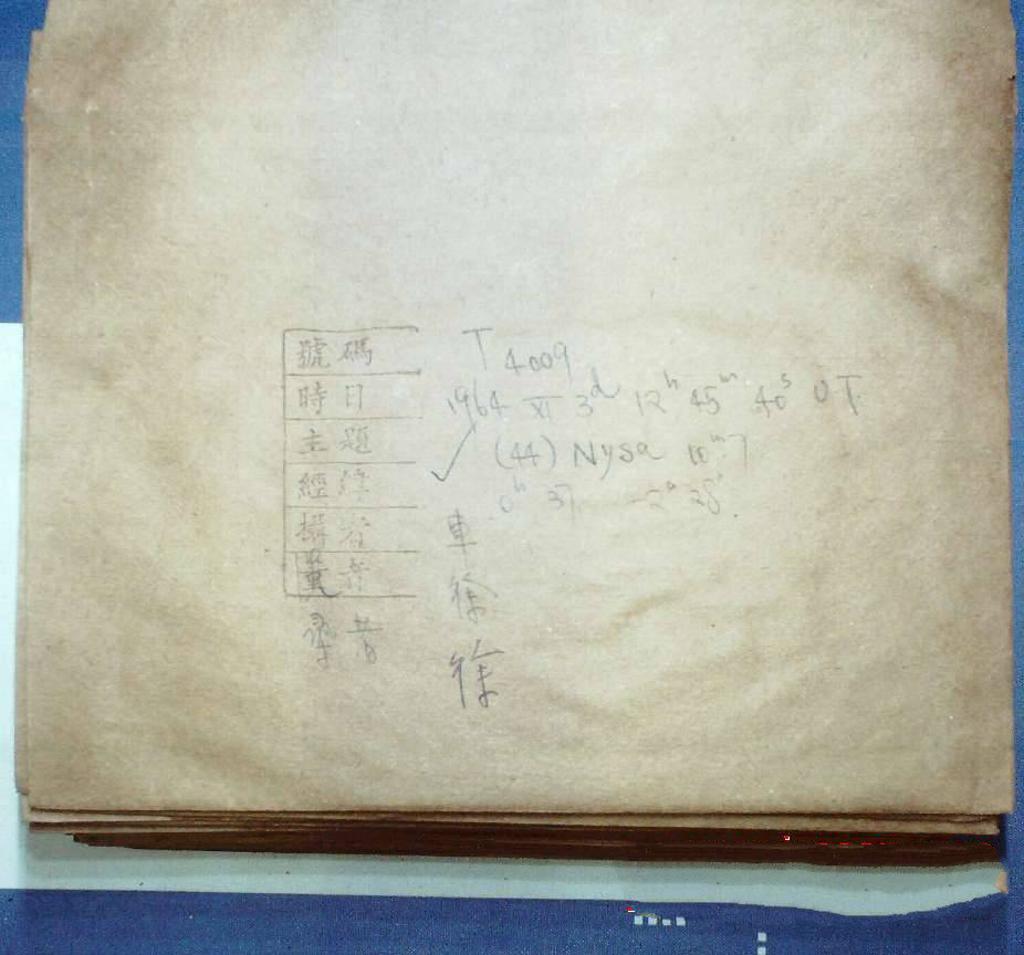 號碼 T 4009
時日 1964 XI 3d 12h 45m 40s UT
主題 (44) Nysa 10m.7
經緯 0h 37 -2° 38'
攝者 車
量者 徐
者 徐